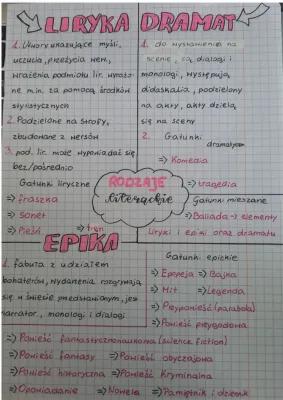 LIRYKA
1. Utwory ukazujące myśli,
uczucia, przeżycia wew.,
wrażenia podmiotu lir. wyrażo-
ne min. za pomocą środków
stylistycznych
2. Podzielone na strofy,
zbudowane z wersów
3. pod. lir. może wypowiadać się
bez/pośrednio
Gatunki liryczne
⇒ fraszka
⇒ Sonet
⇒ Pieśń ⇒ tren
DRAMAT
1. do wystawienia na
scenie, są dialogi i
monologi, występują
didaskalia, podzielony
na akty, akty dzielą
się na sceny
2. Gatunki
dramatyczne
⇒ Komedia
⇒ tragedia
Gatunki mieszane
⇒ Ballada → elementy
liryki i epiki oraz dramatu
RODZAJE
literackie
EPIKA
1. fabuła z udziałem
bohaterów, wydarzenia rozgrywają
się w świecie przedstawionym, jest
narrator, monologi i dialogi
Gatunki epickie
⇒ Epopeja ⇒ Bajka
⇒ Mit ⇒ Legenda
⇒ Przypowieść (parabola)
⇒ Powieść przygodowa
⇒ Powieść fantastycznonaukowa (science fiction)
⇒ Powieść fantasy ⇒ Powieść obyczajowa
⇒ Powieść historyczna ⇒ Powieść kryminalna
⇒ Opowiadanie ⇒ Nowela ⇒ Pamiętnik i dziennik